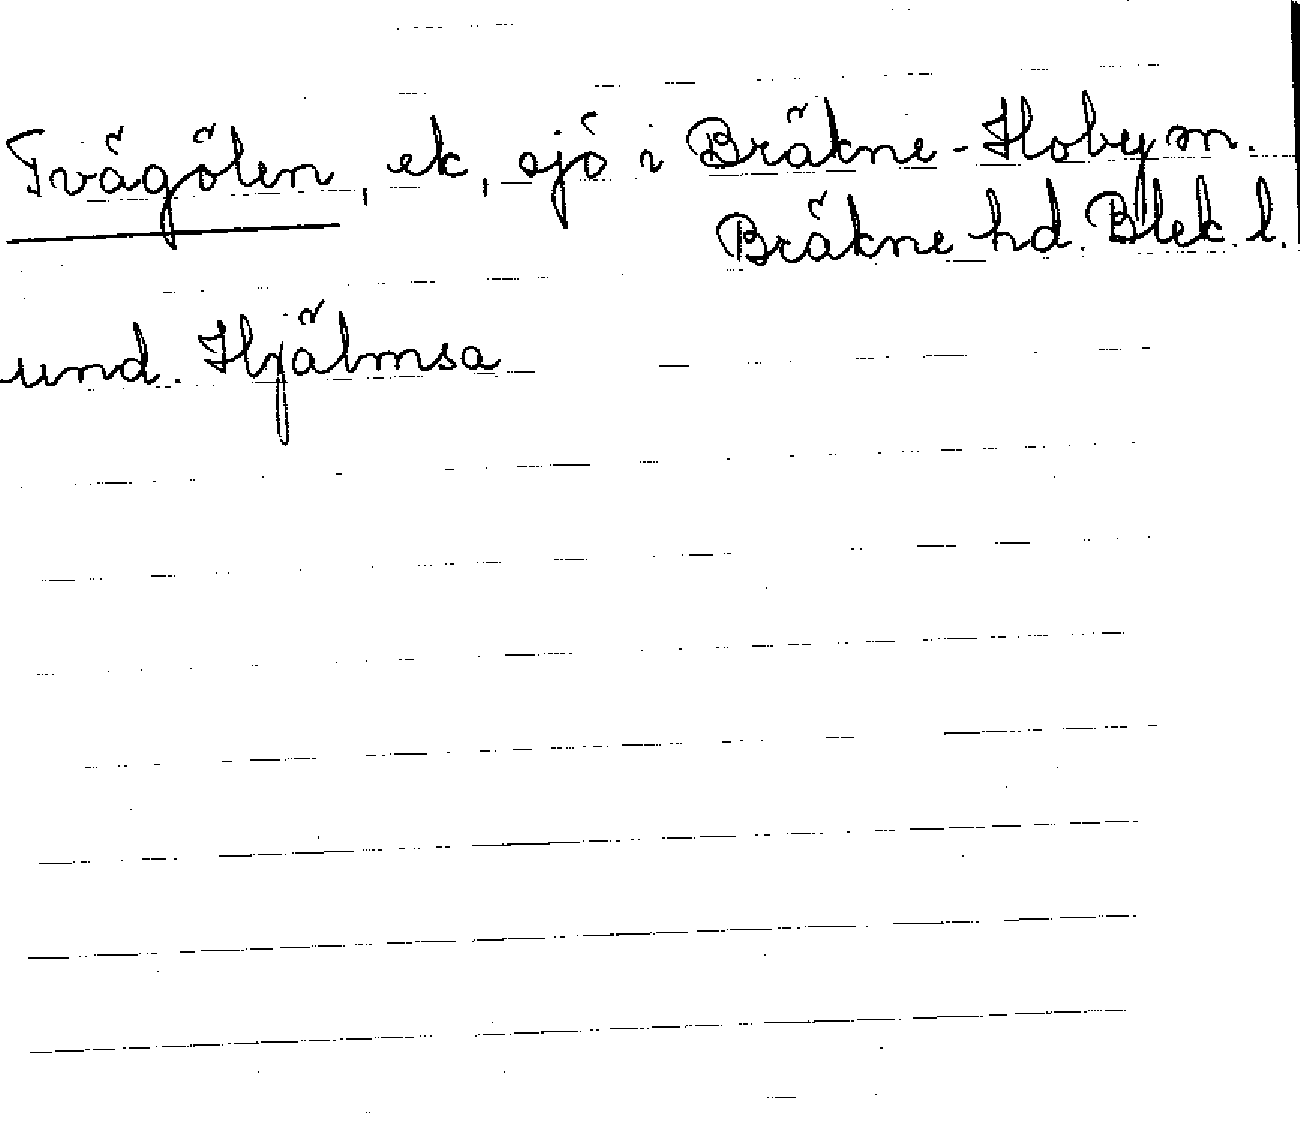 Tvägölen, ek, sjö i Bräkne-Hoby sn.
Bräkne hd. Blek. l.
und. Hjälmsa